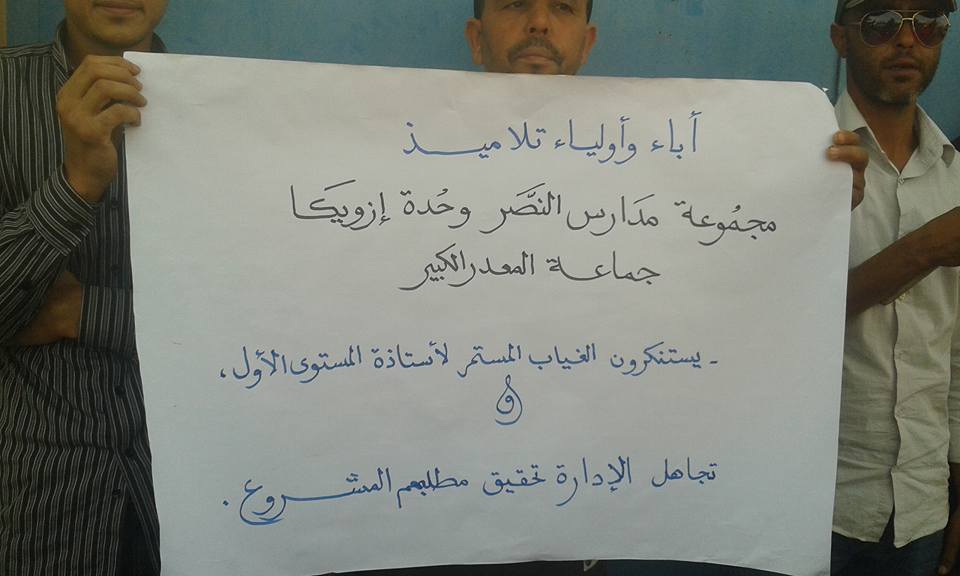 أباء وأولياء تلاميذ
مجمُوعة مَدَارس النصَّر وحُدة إزويكَا
جماعة المعدر الكبير
- يستنكرون الغياب المستمر لأستاذة المستوى الأول،
و
تجاهل الإدارة تحقيق مطلبهم المشروع.